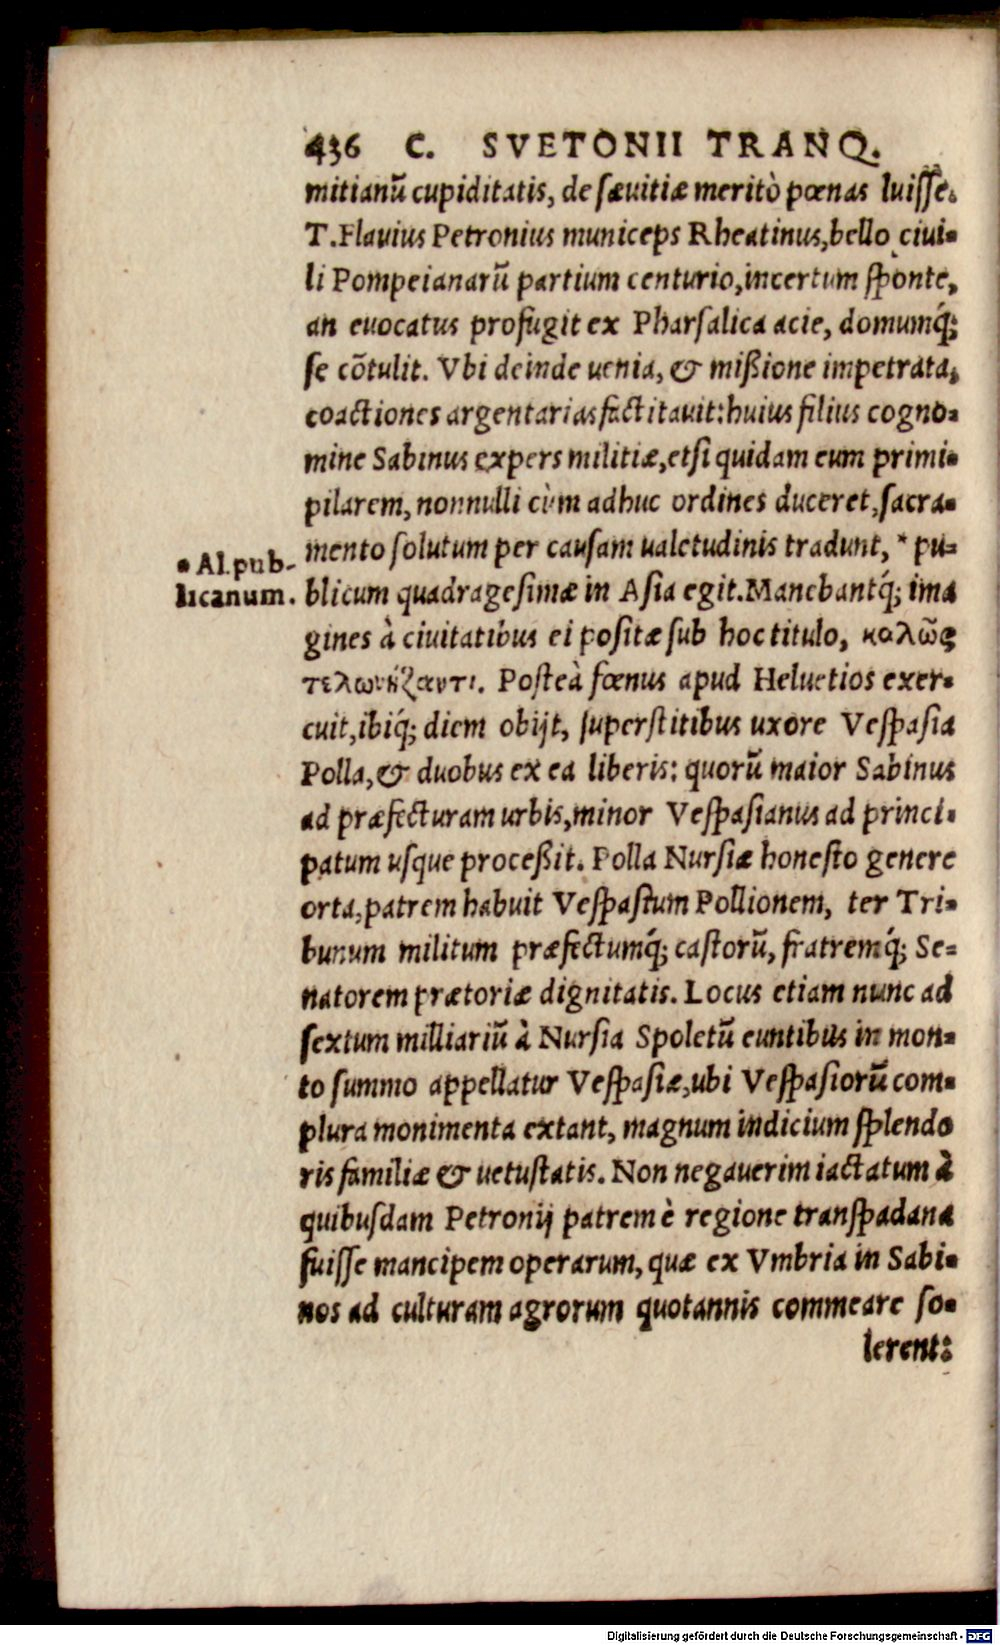 436 C. SVETONII TRANQ.
mitianū cupiditatis, de sævitiæ meritò pœnas luisse.
T. Flauius Petronius municeps Rheatinus, bello ciui-
li Pompeianarū partium centurio, incertum sponte,
an euocatus profugit ex Pharsalica acie, domumq́;
se cōtulit. Vbi deinde uenia, & mißione impetrata,
coactiones argentarias factitauit: huius filius cogno-
mine Sabinus expers militiæ, etsi quidam eum primi-
pilarem, nonnulli cùm adhuc ordines duceret, sacra-
mento solutum per causam ualetudinis tradunt, * pu-
* Al. pub-
licanum.
blicum quadragesimæ in Asia egit. Manebantq́; ima
gines à ciuitatibus ei positæ sub hoc titulo, καλῶς
τελωνήσαντι. Posteà fœnus apud Heluetios exer-
cuit, ibiq́; diem obijt, superstitibus uxore Vespasia
Polla, & duobus ex ea liberis: quorū maior Sabinus
ad præfecturam urbis, minor Vespasianus ad princi-
patum usque proceßit. Polla Nursiæ honesto genere
orta, patrem habuit Vespasium Pollionem, ter Tri-
bunum militum præfectumq́; castorū, fratremq́; Se-
natorem prætoriæ dignitatis. Locus etiam nunc ad
sextum milliariū à Nursia Spoletū euntibus in mon-
to summo appellatur Vespasiæ, ubi Vespasiorū com-
plura monimenta extant, magnum indicium splendo
ris familiæ & uetustatis. Non negauerim iactatum à
quibusdam Petronij patrem è regione transpadana
fuisse mancipem operarum, quæ ex Vmbria in Sabi-
nos ad culturam agrorum quotannis commeare so-
lerent:
Digitalisierung gefördert durch die Deutsche Forschungsgemeinschaft - DFG